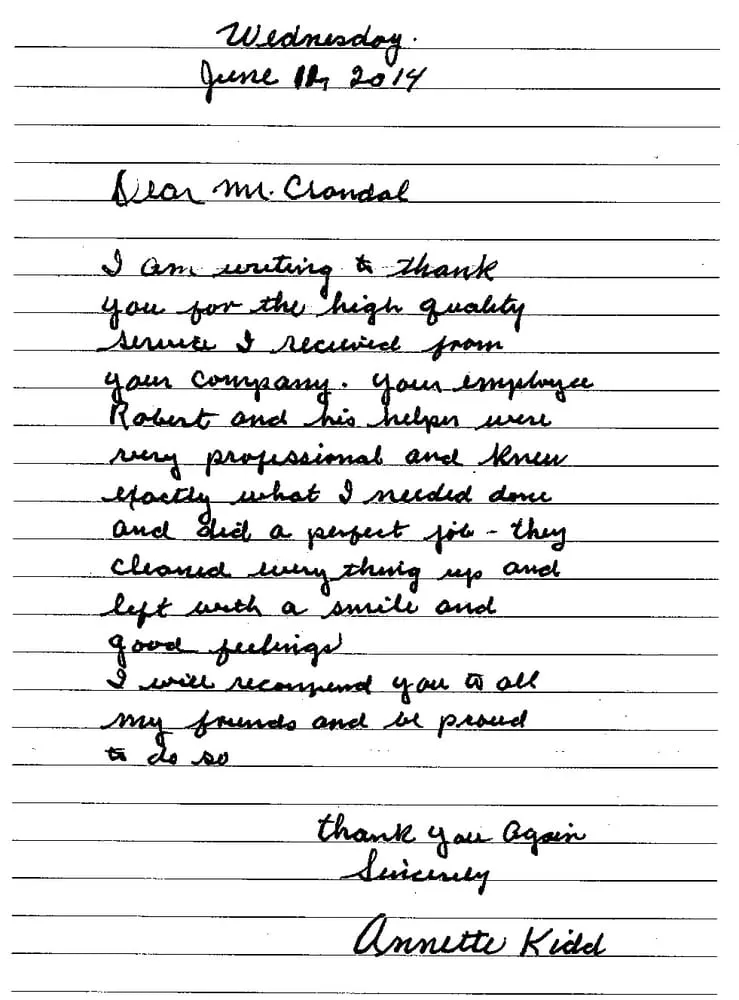 Wednesday.
June 11, 2014
Dear Mr. Crandal
I am writing to thank
you for the high quality
service I recieved from
your company. Your employee
Robert and his helper were
very professional and knew
exactly what I needed done
and did a perfect job - they
cleaned everything up and
left with a smile and
good feelings
I will recompend you to all
my friends and be proud
to do so
Thank you Again
Sincerely
Annette Kidd